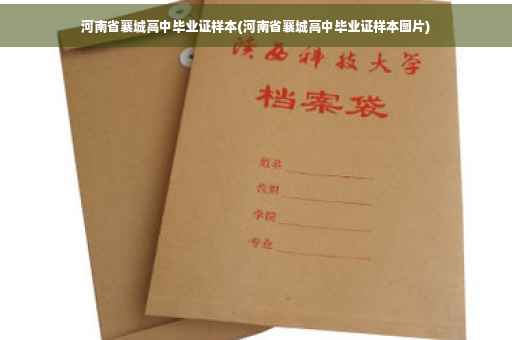 河南省襄城高中毕业证样本(河南省襄城高中毕业证样本图片)
陕西科技大学
档案袋
姓名
学院
专业